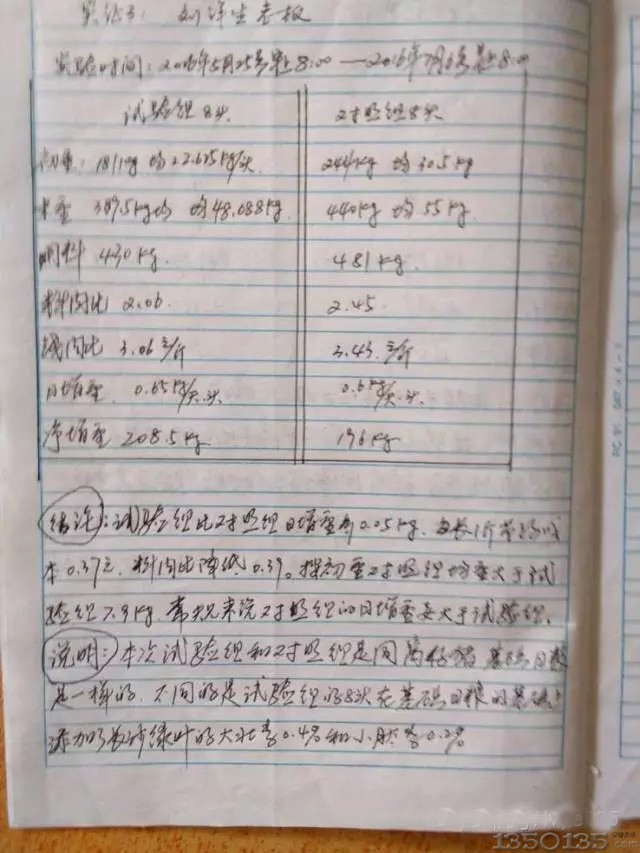 实验3: 刘洋生老板
实验时间:2016年5月25号早上8:00——2016年7月6号早上8:00
试验组8头 对照组8头
初重:181kg 均22.625kg/头 244kg 均30.5kg
末重 389.5kg 均48.688kg 440kg 均55kg
用料 430kg 481kg
料肉比 2.06 2.45
钱肉比 3.06元/斤 3.43元/斤
日增重 0.65kg/天.头 0.6kg/天.头
净增重 208.5kg 196kg
结论:试验组比对照组日增重高0.05kg.每长1斤肉
本0.37元.料肉比降低0.39。按初重对照组均重大于试
验组7.9kg.常规来说对照组的日增重要大于试验组.
说明:本次试验组和对照组是同 仔猪 基础日粮
是一样的.不同的是试验组的8头在基础日粮的基础上
添加了长沙绿叶的大壮素0.4%和小肽素0.2%
1350135.com